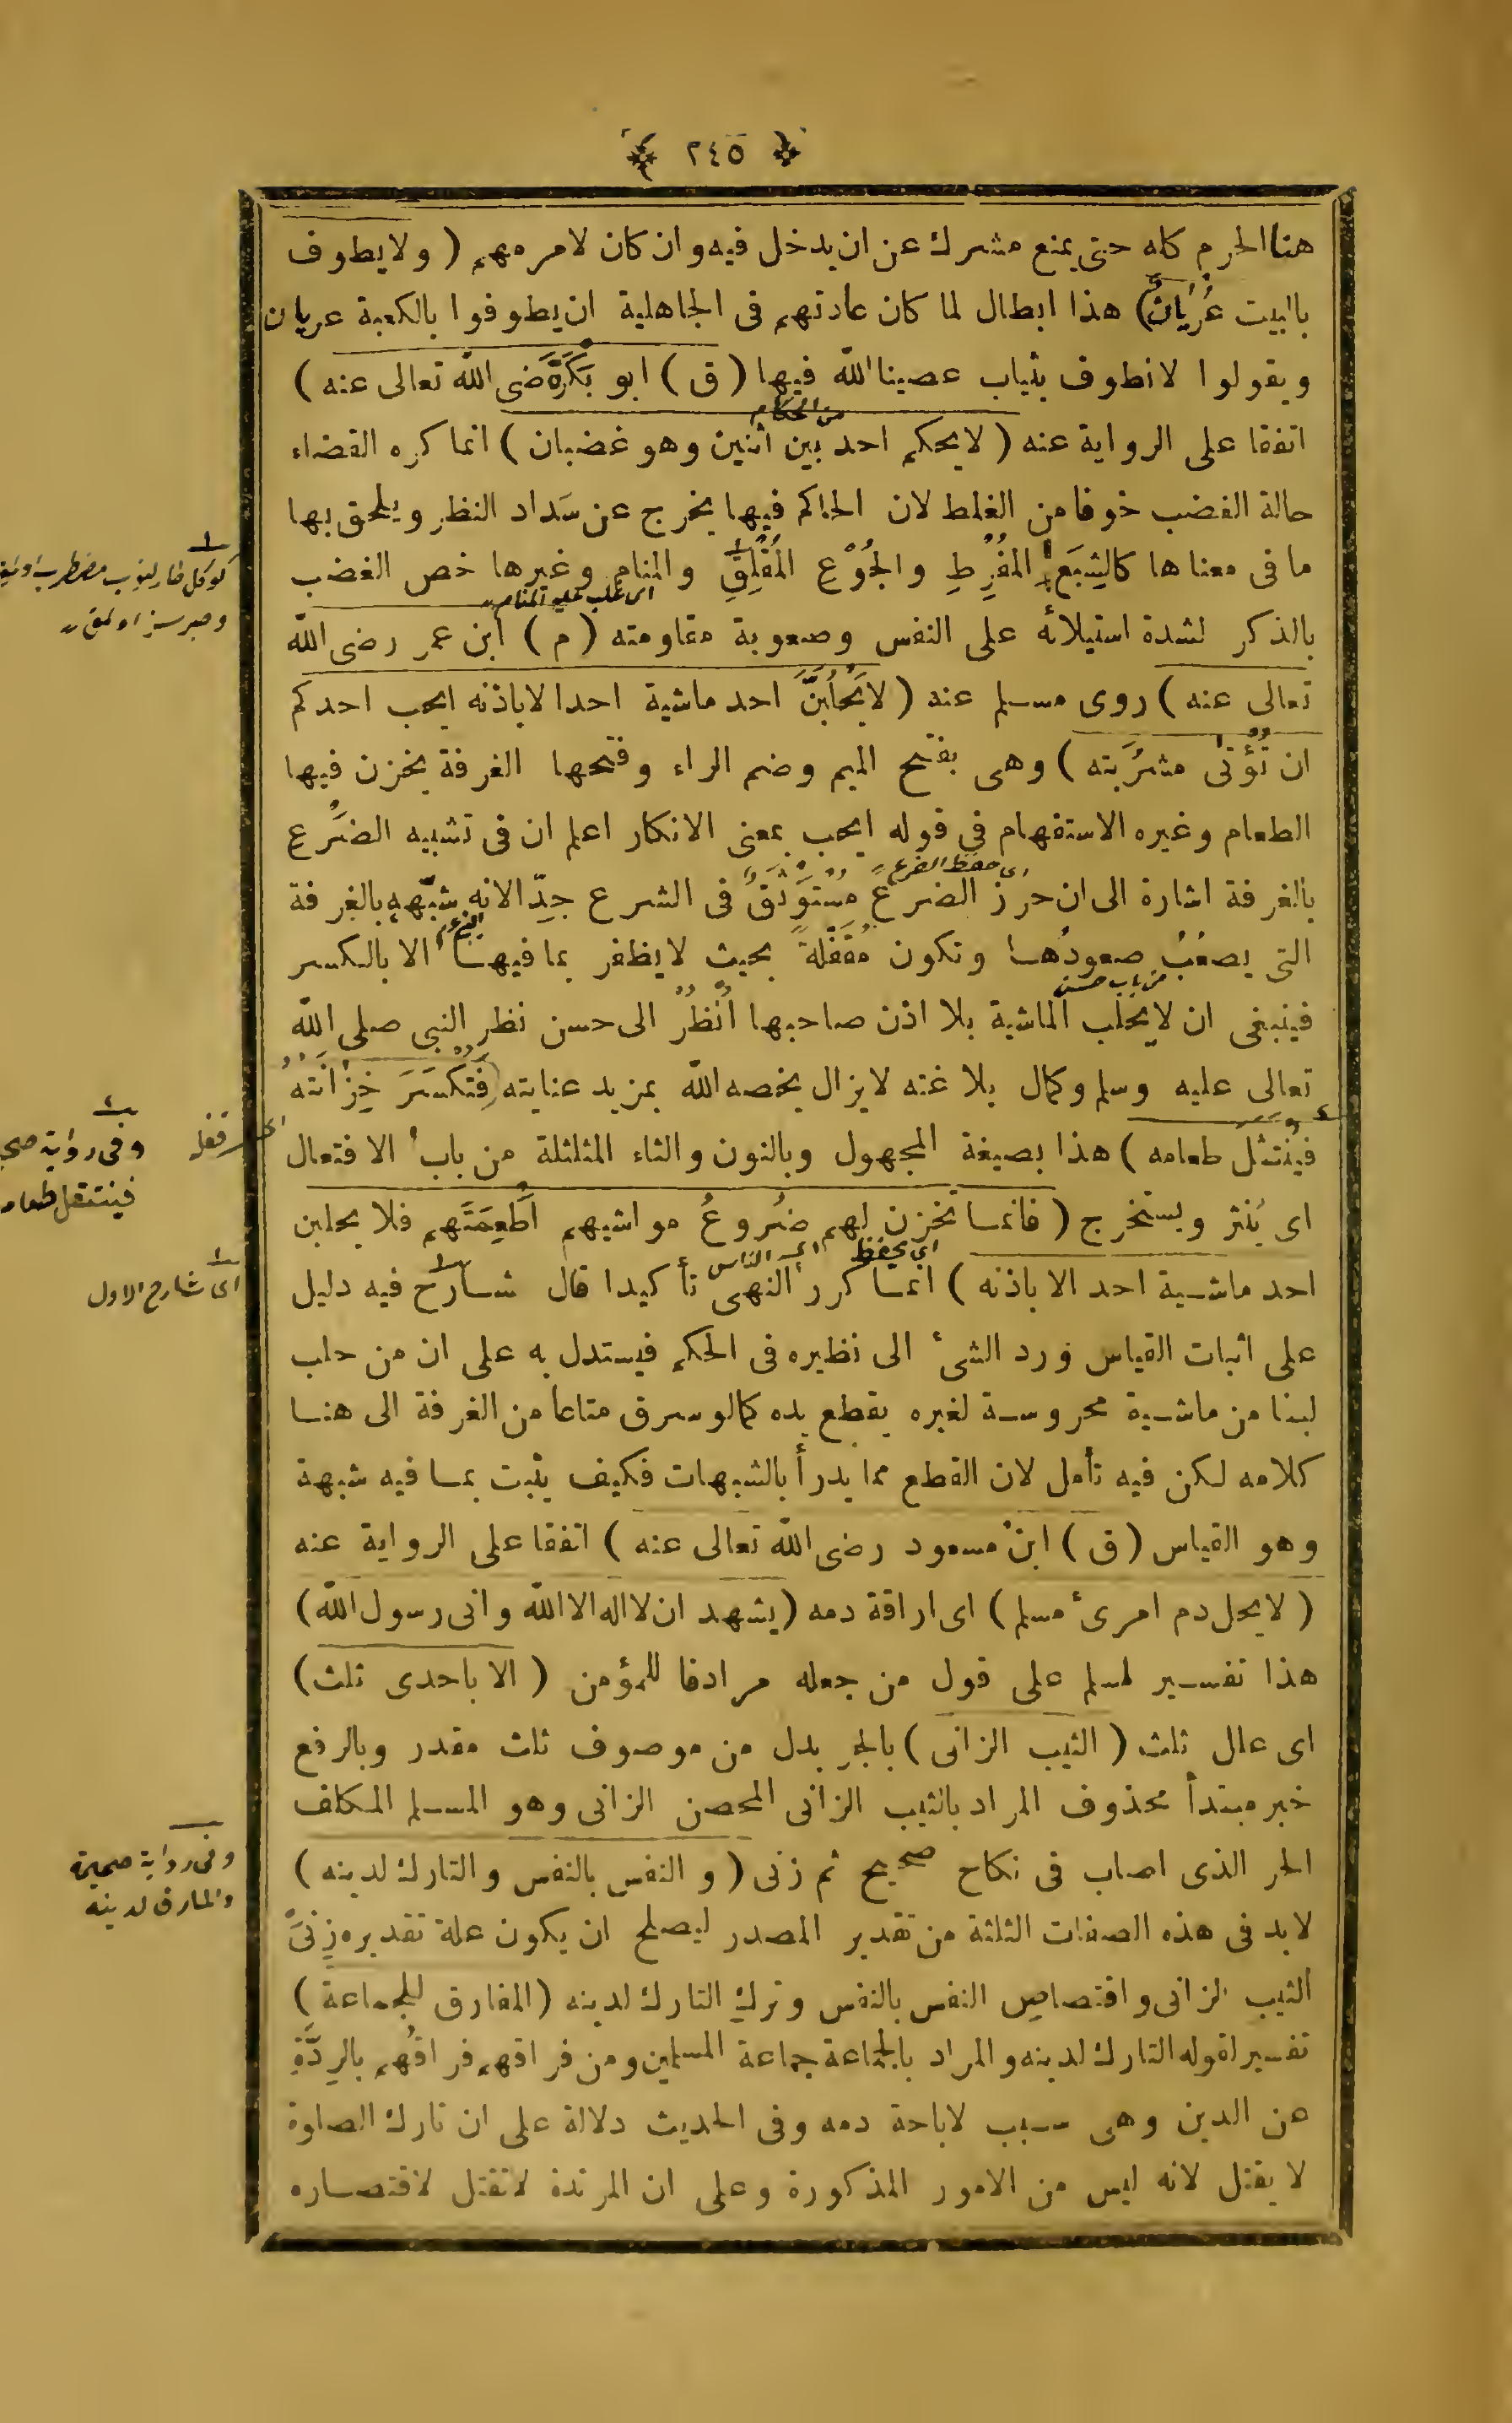 ﴿ ٢٤٥ ﴾
هنا الحرم كله حتى يمنع مشرك عن ان يدخل فيه وان كان لامر مهم ( ولا يطوف
بالبيت عُرْيَانٌ) هذا ابطال لما كان عادتهم فى الجاهلية ان يطوفوا بالكعبة عريان
ويقولوا لانطوف بثياب عصينا الله فيها ( ق ) ابو بَكَرَةَ رَضى الله تعالى عنه )
من الحكام
اتفقا على الرواية عنه ( لايحكم احد بين اثنين وهو غضبان ) انما كره القضاء
حالة الغضب خوفا من الغلط لان الحاكم فيها يخرج عن سَداد النظر ويلحق بها
مافى معناها كالشِبَع المُفْرِطِ والجُوْعِ المُقْلِقِ والمنام وغيرها خص الغضب
اى غلب عليه المنام
بالذكر لشدة استيلائه على النفس وصعوبة مقاومته ( م ) ابن عمر رضى الله
تعالى عنه ) روى مسلم عنه ( لايَحْلُبَنَّ احد ماشية احد الا باذنه ايحب احدكم
ان تُؤْتٰى مشرُبَته ) وهى بفتح الميم وضم الراء وفتحها الغرفة يخزن فيها
الطعام وغيره الاستفهام فى قوله ايحب بمعنى الانكار اعلم ان فى تشبيه الضَرْع
اى حفظ الضرع
بالغرفة اشارة الى ان حرز الضرع مُسْتَوْثَقٌ فى الشرع جدّا لانه شبّهه بالغرفة
التى يصعُبُ صعودُها وتكون مُقَفَّلَةً بحيث لايظفر بما فيها الا بالكسر
من باب حسن
فينبغى ان لايحلب الماشية بلا اذن صاحبها اُنْظُرْ الى حسن نظر النبى صلى الله
تعالى عليه وسلم وكمال بلاغته لايزال يخصه الله بمزيد عنايته (فَتُكْسَرَ خِزْانَتُه
فيُنْتَثَلَ طعامه ) هذا بصيغة المجهول وبالنون والثاء المثلثلة من باب الافتعال
اى يُنثر ويستخرج ( فانما تخزن لهم ضُروعُ مواشيهم اَطْعِمَتَهم فلا يحلبن
اى يحفظ اى الناس
احد ماشية احد الا باذنه ) انما كرر النهى تأكيدا قال شارح فيه دليل
على اثبات القياس ورد الشئ الى نظيره فى الحكم فيستدل به على ان من حلب
لبنا من ماشية محروسة لغيره يقطع يده كما لو سرق متاعا من الغرفة الى هنا
كلامه لكن فيه تأمل لان القطع مما يدرأ بالشبهات فكيف يثبت بما فيه شبهة
وهو القياس ( ق ) ابن مسعود رضى الله تعالى عنه ) اتفقا على الرواية عنه
( لايحل دم امرئ مسلم ) اى اراقة دمه ( يشهد ان لا اله الا الله وانى رسول الله )
هذا تفسير لمسلم على قول من جعله مرادفا للمؤمن ( الا باحدى ثلث )
اى علل ثلث ( الثيب الزانى ) بالجر بدل من موصوف ثلث مقدر وبالرفع
خبر مبتدأ محذوف المراد بالثيب الزانى المحصن الزانى وهو المسلم المكلف
الحر الذى اصاب فى نكاح صحيح ثم زنى ( و النفس بالنفس والتارك لدينه )
لابد فى هذه الصفات الثلثة من تقدير المصدر ليصلح ان يكون علة تقديره زِنَى
الثيب الزانى واقتصاص النفس بالنفس وترك التارك لدينه ( المفارق للجماعة )
تفسير لقوله التارك لدينه والمراد بالجماعة جماعة المسلمين ومن فراقهم فراقُهم بالرِدَّةِ
عن الدين وهى سبب لاباحة دمه وفى الحديث دلالة على ان تارك الصلوة
لايقتل لانه ليس من الامور المذكورة وعلى ان المرتدة لاتقتل لاقتصاره
وصبرسز اولمق
اى كسر قفل
وفى رواية
فينتقل طعامه
اى شارح الاول
وفى رواية صحيحة
والمارق لدينه